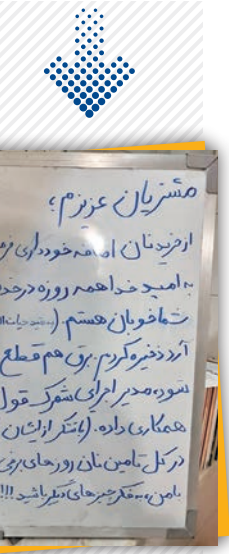 مشتریان عزیزم؛
از خرید نان اضافه خودداری فر
به امید خدا همه روزه در خد
شما خوبان هستم. (به شرط حیات
آرد ذخیره کردم. برق هم قطع
شود، مدیر اجرای شهرک قول
همکاری داده. (باتشکر از ایشان
در کل تامین نان روزهای برفی
بامن، به فکر چیزهای دیگر باشید!!!